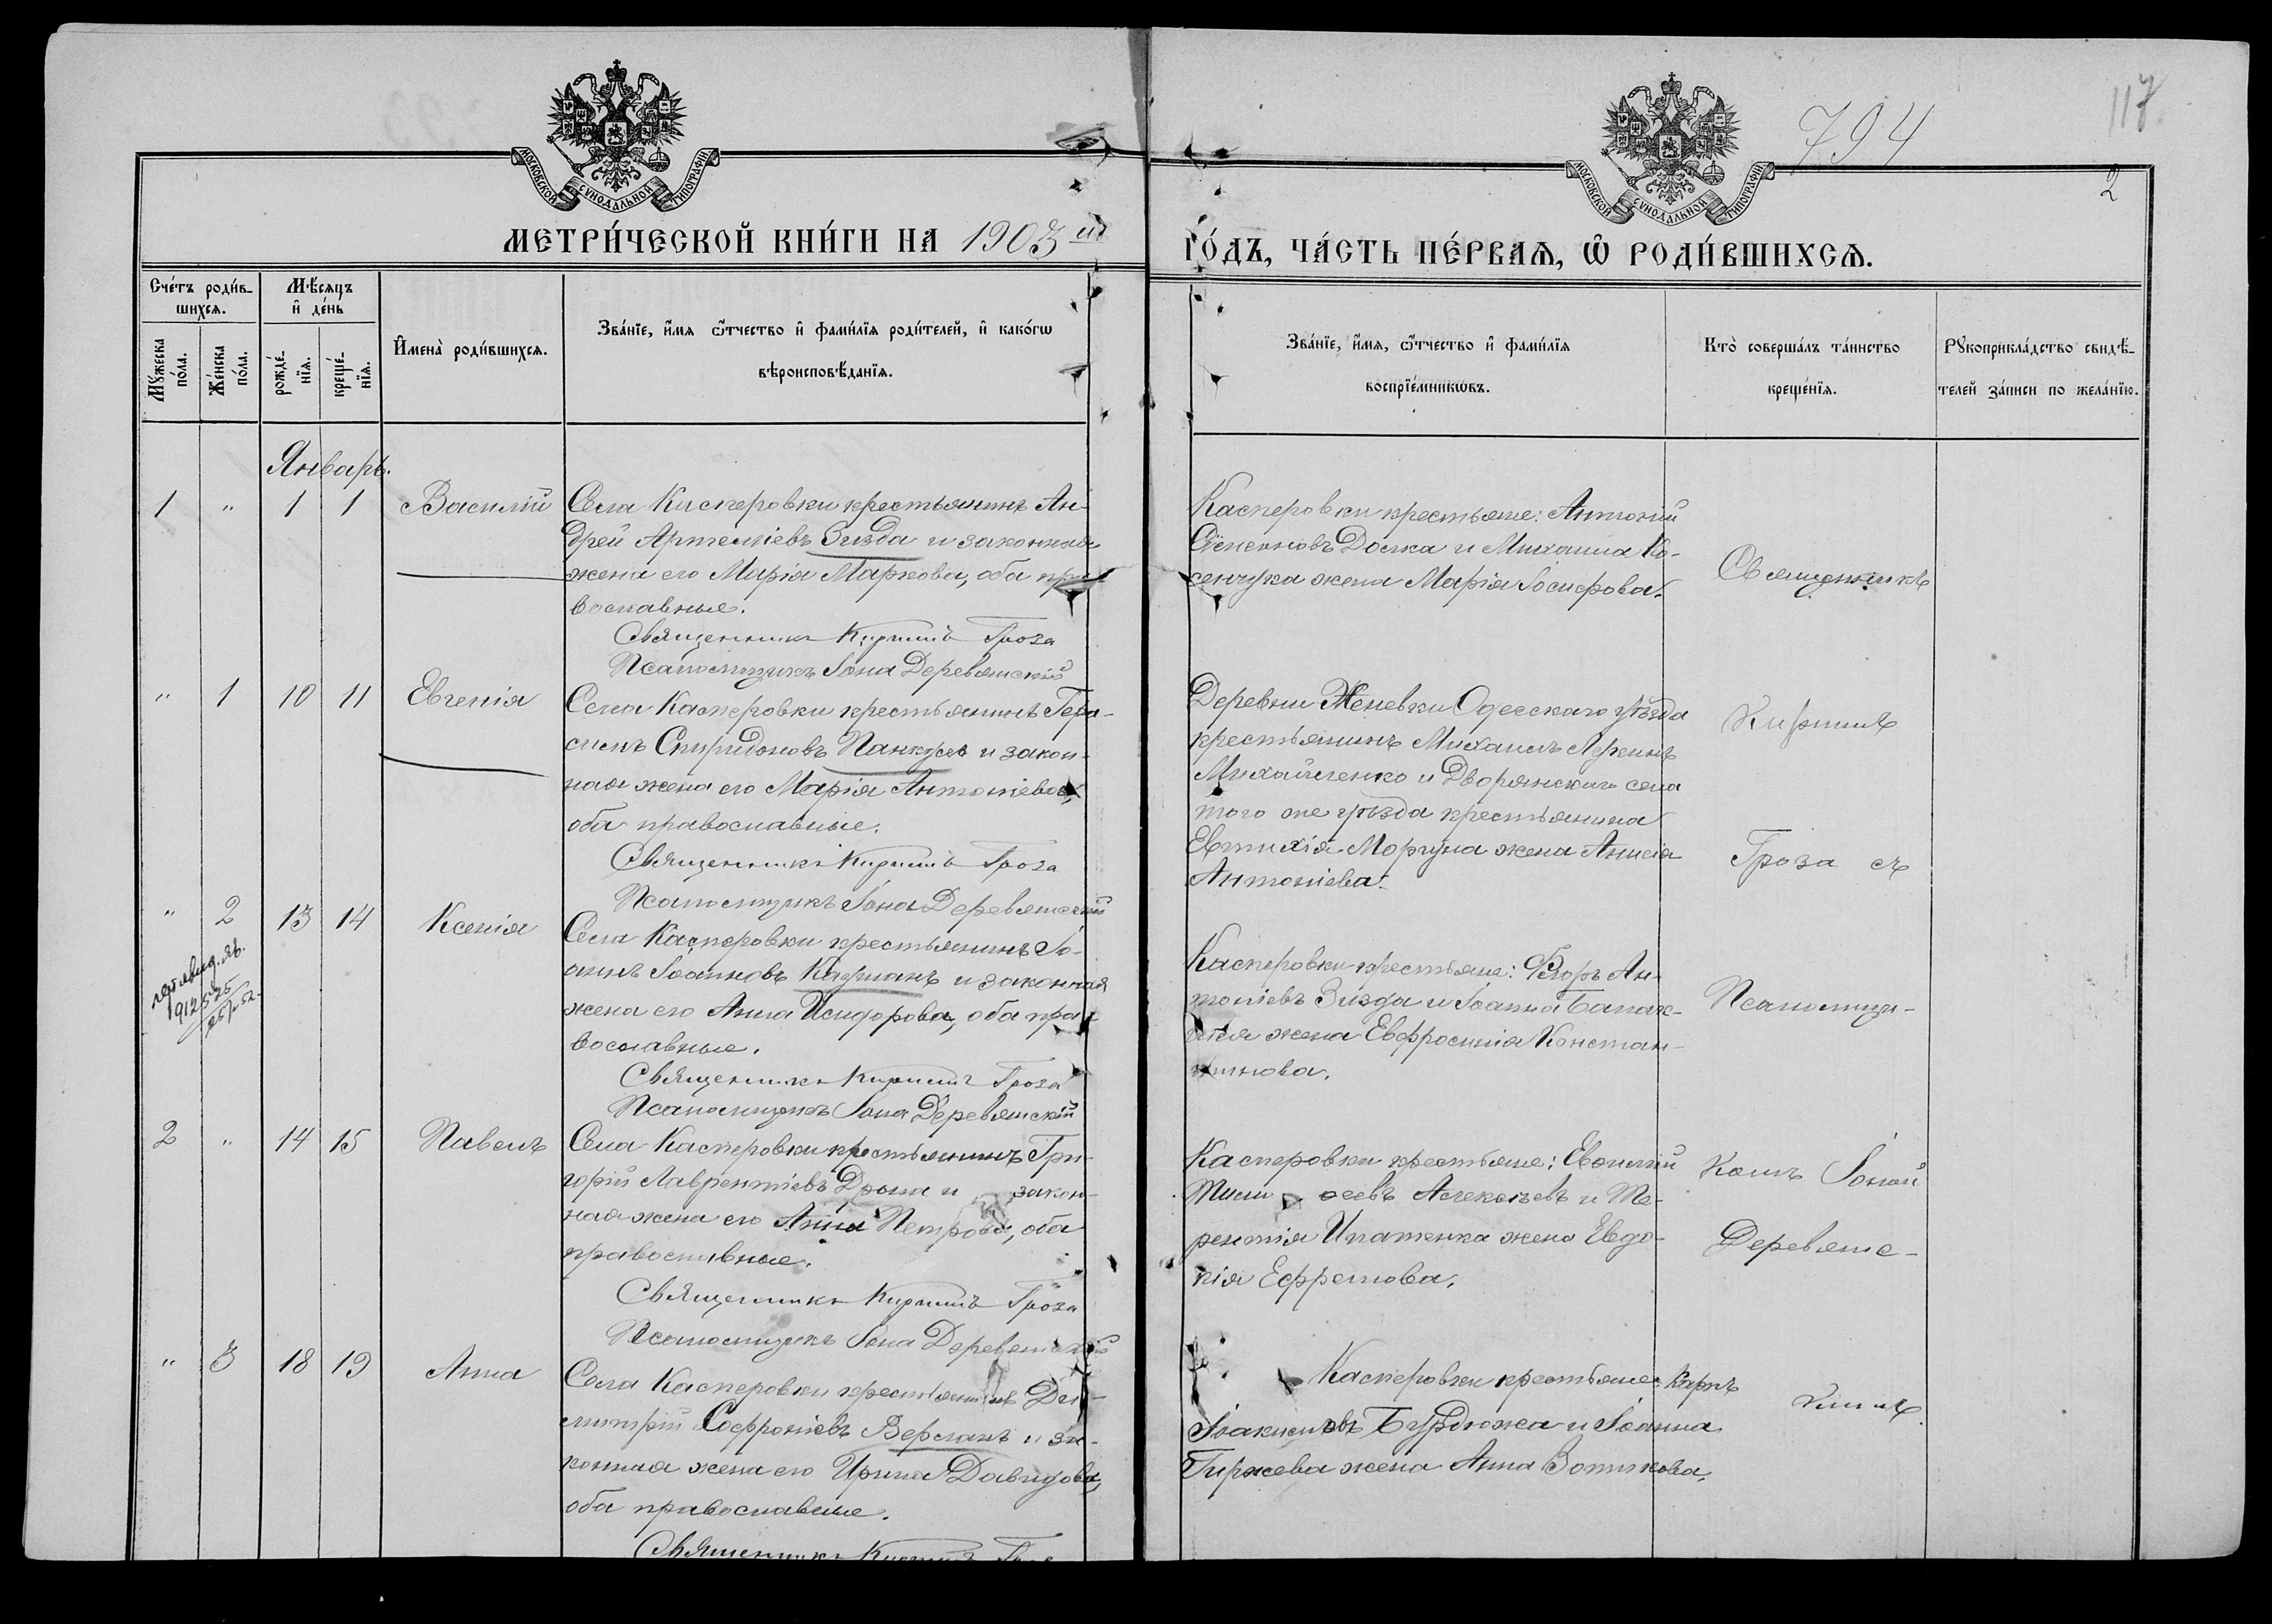 794
117
2
МОСКОВСКОЙ СѴНОДАЛЬНОЙ ТИПОГРАФІИ
МОСКОВСКОЙ СѴНОДАЛЬНОЙ ТИПОГРАФІИ
МЕТРИ́ЧЕСКОЙ КНИ́ГИ НА 1903 й
ГО́ДЪ, ЧА́СТЬ ПЕ́РВАѦ, Ѽ РОДИ́ВШИХСѦ.
Счётъ роди́в-
шихсѧ.
Мѣ́сѧцъ
и҆ де́нь
Мꙋ́жеска по́ла.
Же́нска по́ла.
рожде́-нїѧ.
креще́-нїѧ.
И҆мена̀ роди́вшихсѧ.
Зва́нїе, и҆́мѧ ѻ҆́тчество и҆ фами́лїѧ роди́телей, и҆ како́гѡ
вѣроисповѣ́данїѧ.
Зва́нїе, и҆́мѧ, ѻ҆́тчество и҆ фами́лїѧ
воспрїе́мникѡвъ.
Кто̀ соверша́лъ та́инство
креще́нїѧ.
Рꙋкоприкла́дство свидѣ́-
телей за́писи по жела́нїю.
Январь.
1 " 1 1 Василій
Села Касперовки крестьянинъ Ан-
дрей Артеміевъ Зизда и законная
жена его Марія Маркова, оба пра-
вославные.
Священникъ Кириллъ Гроза
Псаломщикъ Іона Деревянскій
Касперовки крестьяне: Антоній
Долка и Михаила Ко-
сенчука жена Марія Іосифова.
Священникъ
" 1 10 11 Евгенія
Села Касперовки крестьянинъ Гера-
симъ Спиридоновъ Панкулъ и закон-
ная жена его Марія Антоніева,
оба православные.
Священникъ Кириллъ Гроза
Псаломщикъ Іона Деревянскій
Деревни Женевки Одесскаго уѣзда
крестьянинъ Михаилъ
Михайленко и Дворянскаго села
того же уѣзда крестьянина
Евтихія Моргуна жена Анисія
Антоніева.
Кириллъ
Гроза съ
" 2 13 14 Ксенія
Села Касперовки крестьянинъ Іо-
аннъ Іоанновъ Кауманъ и законная
жена его Анна Исидорова, оба пра-
вославные.
Священникъ Кириллъ Гроза
Псаломщикъ Іона Деревянскій
Касперовки крестьяне: Ѳеодоръ Ан-
тоніевъ Зизда и Іоанна
жена Евфросинія Констан-
тинова.
Псаломщи-
2 " 14 15 Павелъ
Села Касперовки крестьянинъ Гри-
горій Лаврентіевъ и закон-
ная жена его Анна Петрова, оба
православные.
Священникъ Кириллъ Гроза
Псаломщикъ Іона Деревянскій
Касперовки крестьяне:
Алексѣевъ и Те-
рентія Ипатенка жена Евдо-
кія Ефремова.
комъ Іоной
Деревянс-
" 3 18 19 Анна
Села Касперовки крестьянинъ Ди-
митрій Софроніевъ Верланъ и за-
конная жена его Ирина Давидова,
оба православные.
Священникъ Кириллъ
Касперовки крестьяне: Карпъ
Іоакимовъ Бурдюжа и Іоанна
Гиржева жена Анна Зотикова.
кимъ.